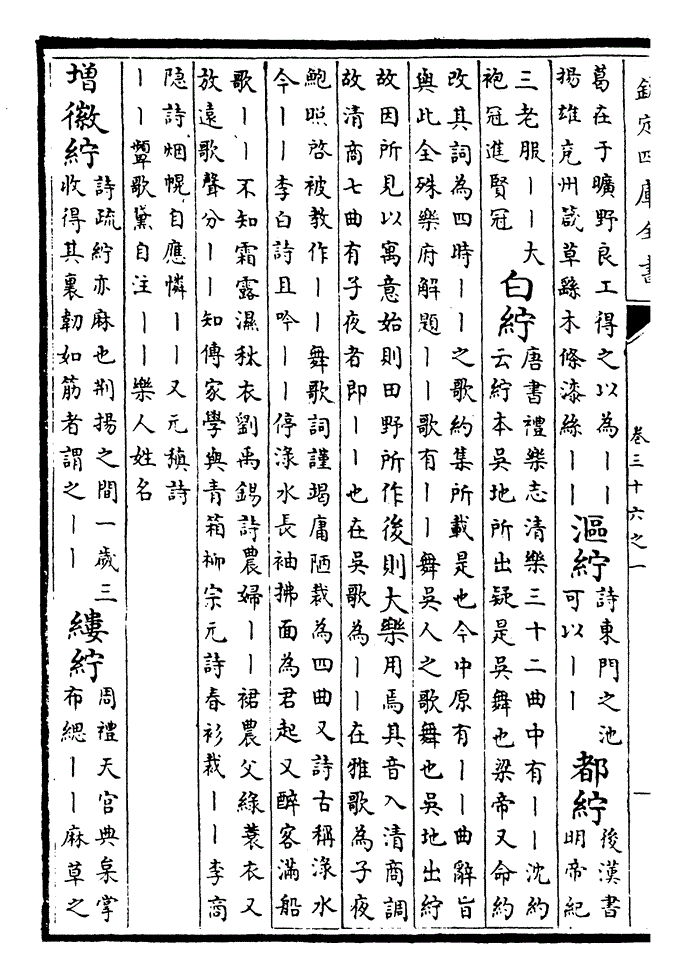 欽定四庫全書
卷三十六之一
葛在于曠野良工得之以為丨丨
揚雄兖州箴草繇木條漆絲丨丨
漚紵
詩東門之池
可以丨丨
都紵
後漢書
明帝紀
三老服丨丨大
袍冠進賢冠
白紵
唐書禮樂志清樂三十二曲中有丨丨沈約
云紵本吳地所出疑是吳舞也梁帝又命約
改其詞為四時丨丨之歌約集所載是也今中原有丨丨曲辭旨
與此全殊樂府解題丨丨歌有丨丨舞吳人之歌舞也吳地出紵
故因所見以寓意始則田野所作後則大樂用焉其音入清商調
故清商七曲有子夜者即丨丨也在吳歌為丨丨在雅歌為子夜
鮑照啓被教作丨丨舞歌詞謹竭庸陋裁為四曲又詩古稱淥水
今丨丨李白詩且吟丨丨停淥水長袖拂面為君起又醉客滿船
歌丨丨不知霜露濕秋衣劉禹錫詩農婦丨丨裙農父綠蓑衣又
放遠歌聲分丨丨知傳家學與青箱柳宗元詩春衫裁丨丨李商
隐詩烟幌自應憐丨丨又元稹詩
丨丨顰歌黛自注丨丨樂人姓名
增徽紵
詩疏紵亦麻也荆揚之間一歲三
收得其裏韌如筋者謂之丨丨
縷紵
周禮天官典枲掌
布緦丨丨麻草之